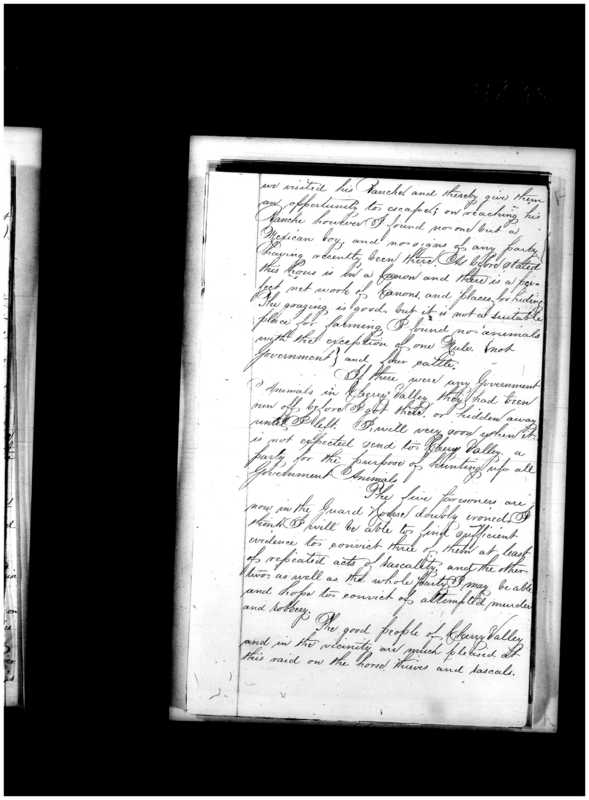 we visited his Ranche and thereby give them
an opportunity to escape; on reaching his
Ranche however I found no one but a
Mexican boy, and no signs of any party
having recently been there. As before stated
this House is in a Canon and there is a per-
fect net work of Canons, and places for hiding
The grazing is good but it is not a suitable
place for farming. I found no animals
with the exception of one Mule (not
Government) and few cattle.
If there were any Government
Animals in Cherry Valley they had been
run off before I got there, or hidden away
until I left I will very soon when it
is not expected send to Cherry Valley a
party for the purpose of hunting up all
Government Animals
The five prisoners are
now in the Guard House doubly ironed. I
think I will be able to find sufficient
evidence to convict three of them at least
of repeated acts of rascality, and the other
two as well as the whole party I may be able
and hope to convict of attempted murder
and robbery.
The good people of Cherry Valley
and in the vicinity are much pleased at
this raid on the horse thieves and rascals.